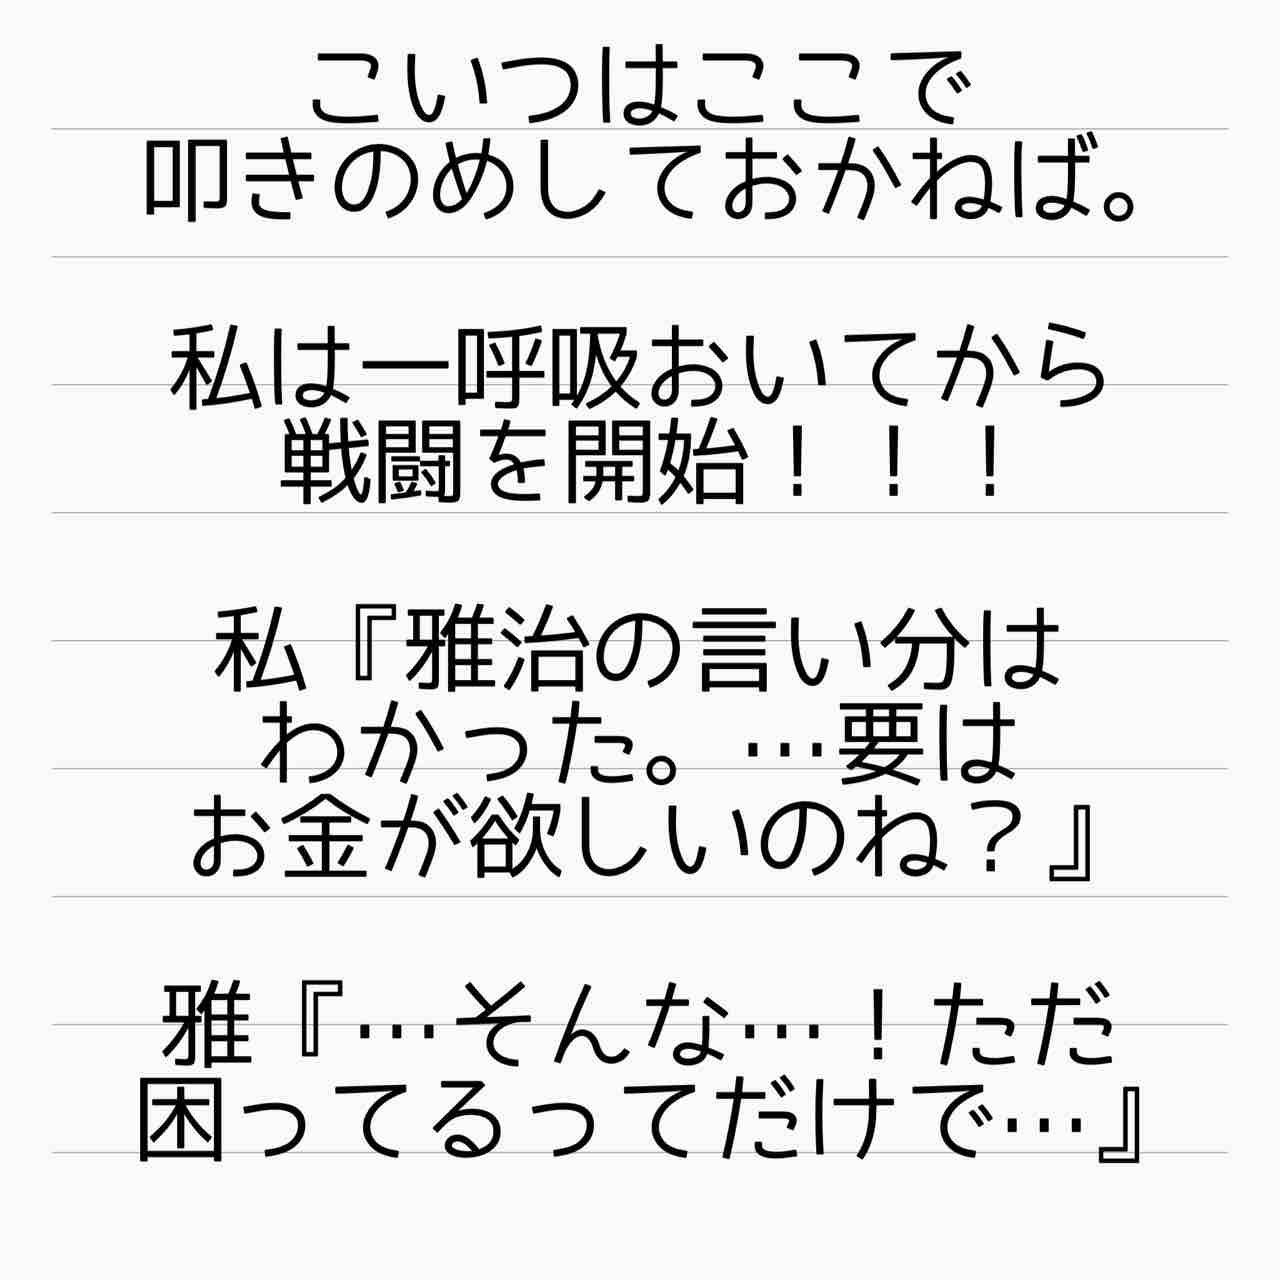 こいつはここで
叩きのめしておかねば。
私は一呼吸おいてから
戦闘を開始！！！
私『雅治の言い分は
わかった。…要は
お金が欲しいのね？』
雅『…そんな…！ただ
困ってるってだけで…』